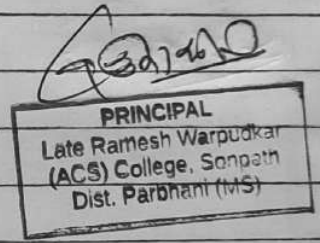 PRINCIPAL
Late Ramesh Warpudkar
(ACS) College, Sonpeth
Dist. Parbhani (MS)